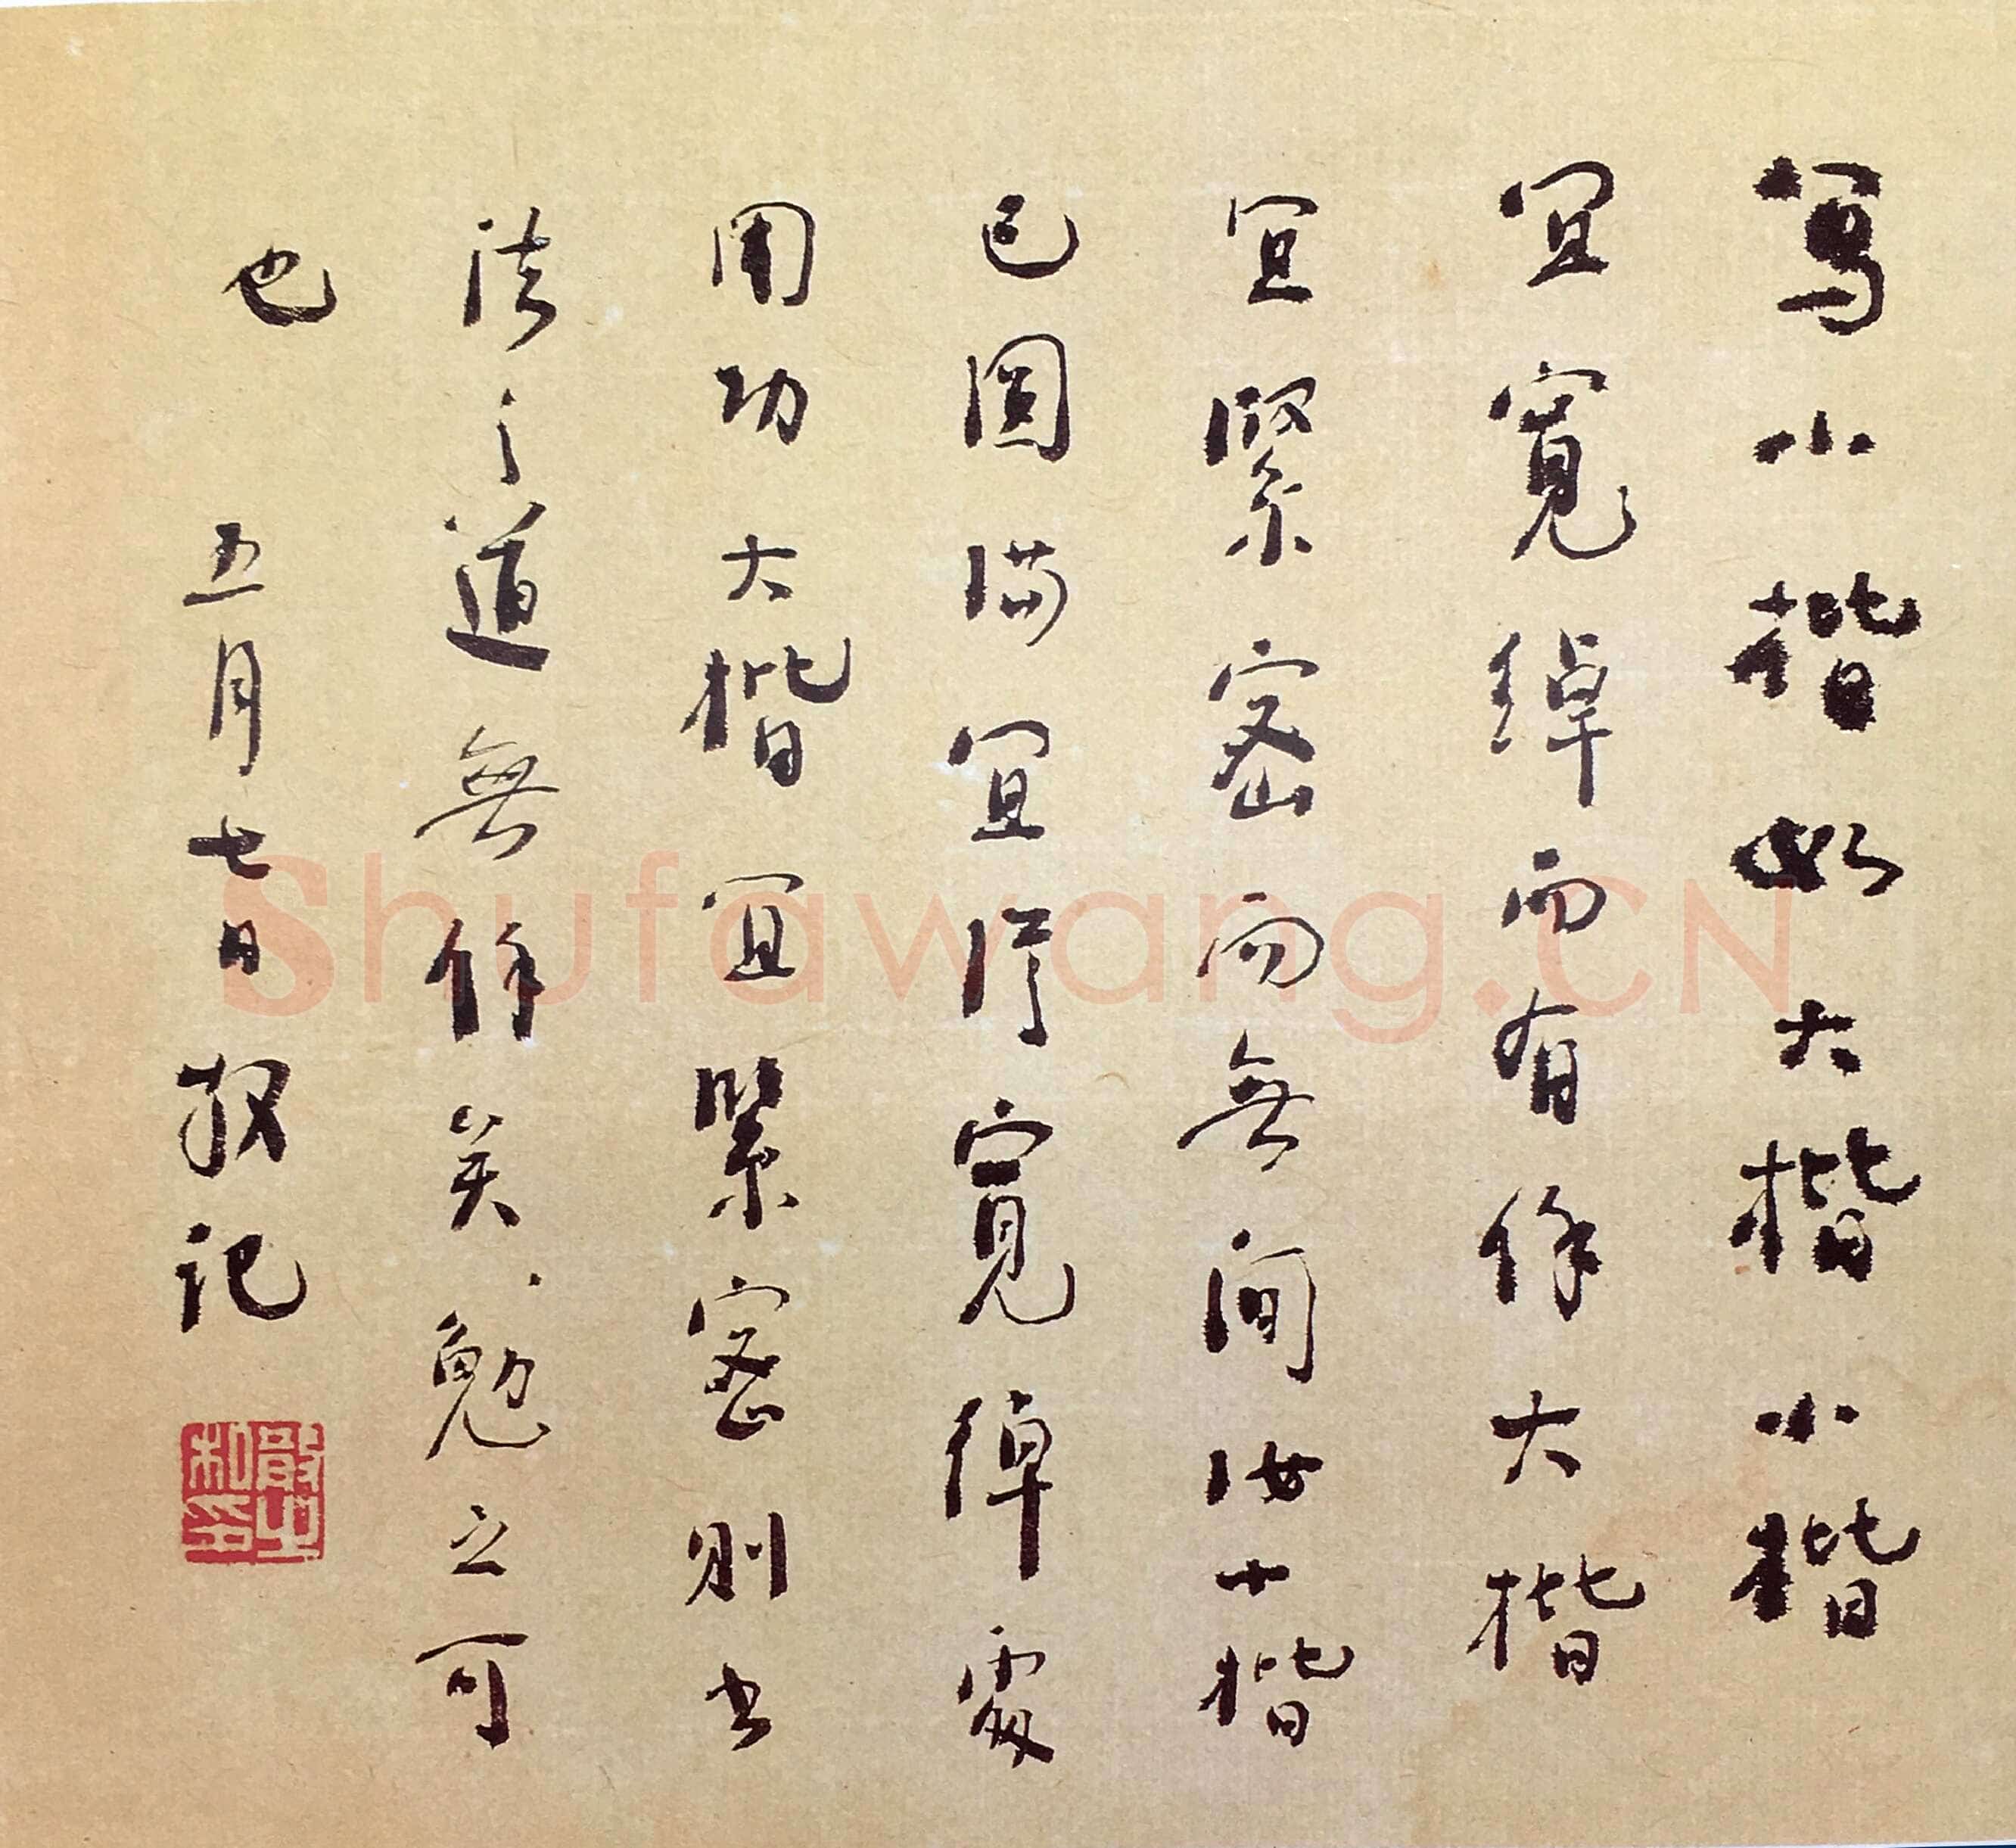 寫小楷如大楷小楷
宜寬綽而有餘大楷
宜緊密而無间汝小楷
已圓满宜從寬綽處
用功大楷宜緊密則书
法之道無餘矣勉之可
也 五月七日散记
散之私印
Shufawang.CN